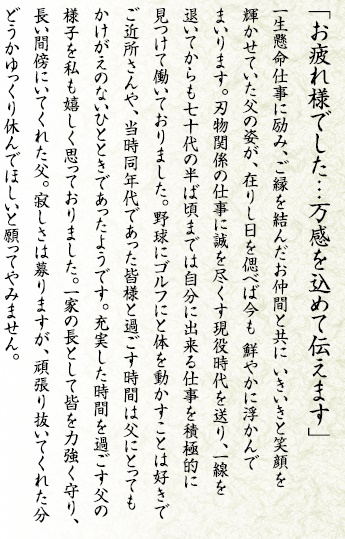 「お疲れ様でした…万感を込めて伝えます」
一生懸命仕事に励み、ご縁を結んだお仲間と共に いきいきと笑顔を
輝かせていた父の姿が、在りし日を偲べば今も 鮮やかに浮かんで
まいります。刃物関係の仕事に誠を尽くす現役時代を送り、一線を
退いてからも七十代の半ば頃までは自分に出来る仕事を積極的に
見つけて働いておりました。野球にゴルフにと体を動かすことは好きで
ご近所さんや、当時同年代であった皆様と過ごす時間は父にとっても
かけがえのないひとときであったようです。充実した時間を過ごす父の
様子を私も嬉しく思っておりました。一家の長として皆を力強く守り、
長い間傍にいてくれた父。寂しさは募りますが、頑張り抜いてくれた分
どうかゆっくり休んでほしいと願ってやみません。